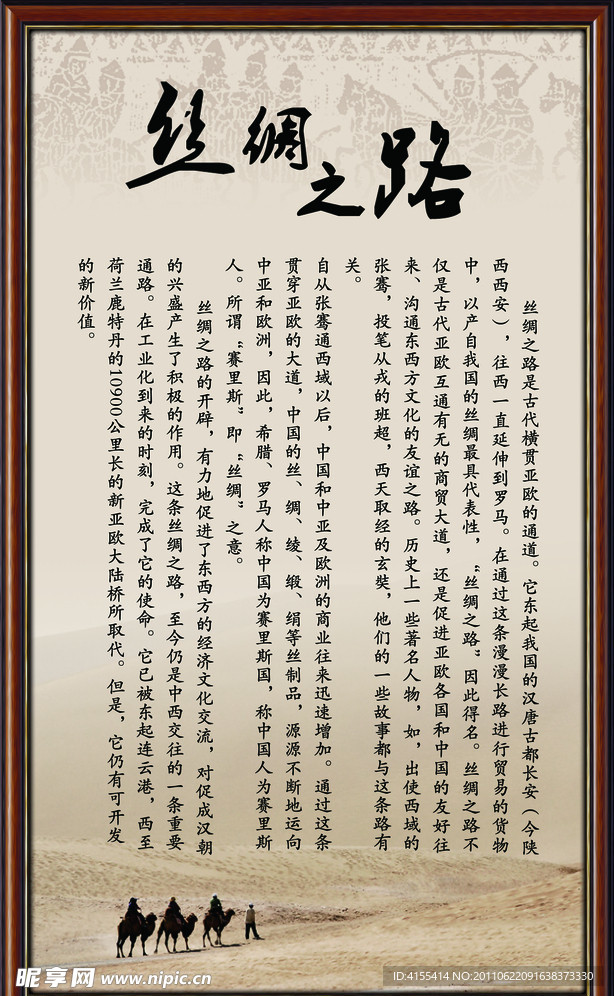 丝绸之路
丝绸之路是古代横贯亚欧的通道。它东起我国的汉唐古都长安（今陕
西西安），往西一直延伸到罗马。在通过这条漫漫长路进行贸易的货物
中，以产自我国的丝绸最具代表性，“丝绸之路”因此得名。丝绸之路不
仅是古代亚欧互通有无的商贸大道，还是促进亚欧各国和中国的友好往
来、沟通东西方文化的友谊之路。历史上一些著名人物，如，出使西域的
张骞，投笔从戎的班超，西天取经的玄奘，他们的一些故事都与这条路有
关。
自从张骞通西域以后，中国和中亚及欧洲的商业往来迅速增加。通过这条
贯穿亚欧的大道，中国的丝、绸、绫、缎、绢等丝制品，源源不断地运向
中亚和欧洲，因此，希腊、罗马人称中国为赛里斯国，称中国人为赛里斯
人。所谓“赛里斯”即“丝绸”之意。
丝绸之路的开辟，有力地促进了东西方的经济文化交流，对促成汉朝
的兴盛产生了积极的作用。这条丝绸之路，至今仍是中西交往的一条重要
通路。在工业化到来的时刻，完成了它的使命。它已被东起连云港，西至
荷兰鹿特丹的10900公里长的新亚欧大陆桥所取代。但是，它仍有可开发
的新价值。
昵享网 www.nipic.cn
ID:4155414 NO:20110622091638373330